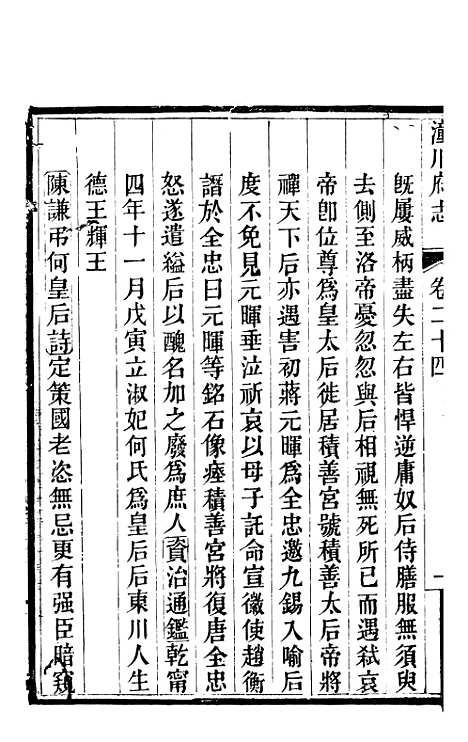 潼川府志
卷二十四
一
旣屢威柄盡失左右皆悍逆庸奴后侍膳服無須臾
去側至洛帝憂忽忽與后相視無死所已而遇弑哀
帝卽位尊爲皇太后徙居積善宮號積善太后帝將
禪天下后亦遇害初蔣元暉爲全忠邀九錫入喻后
度不免見元暉垂泣祈哀以母子託命宣徽使趙衡
譖於全忠曰元暉等銘石像瘞積善宮將復唐全忠
怒遂遣縊后以醜名加之廢爲庶人資治通鑑乾甯
四年十一月戊寅立淑妃何氏爲皇后后東川人生
德王輝王
陳謙弔何皇后詩定策國老恣無忌更有强臣暗窺